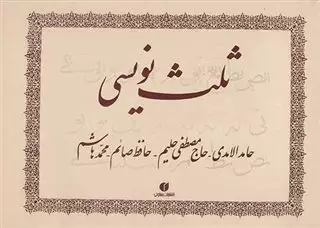 ثلث نویسی
حامد الامدی - حاج مصطفی حلیم - حافظ صائم - محمد هاشم